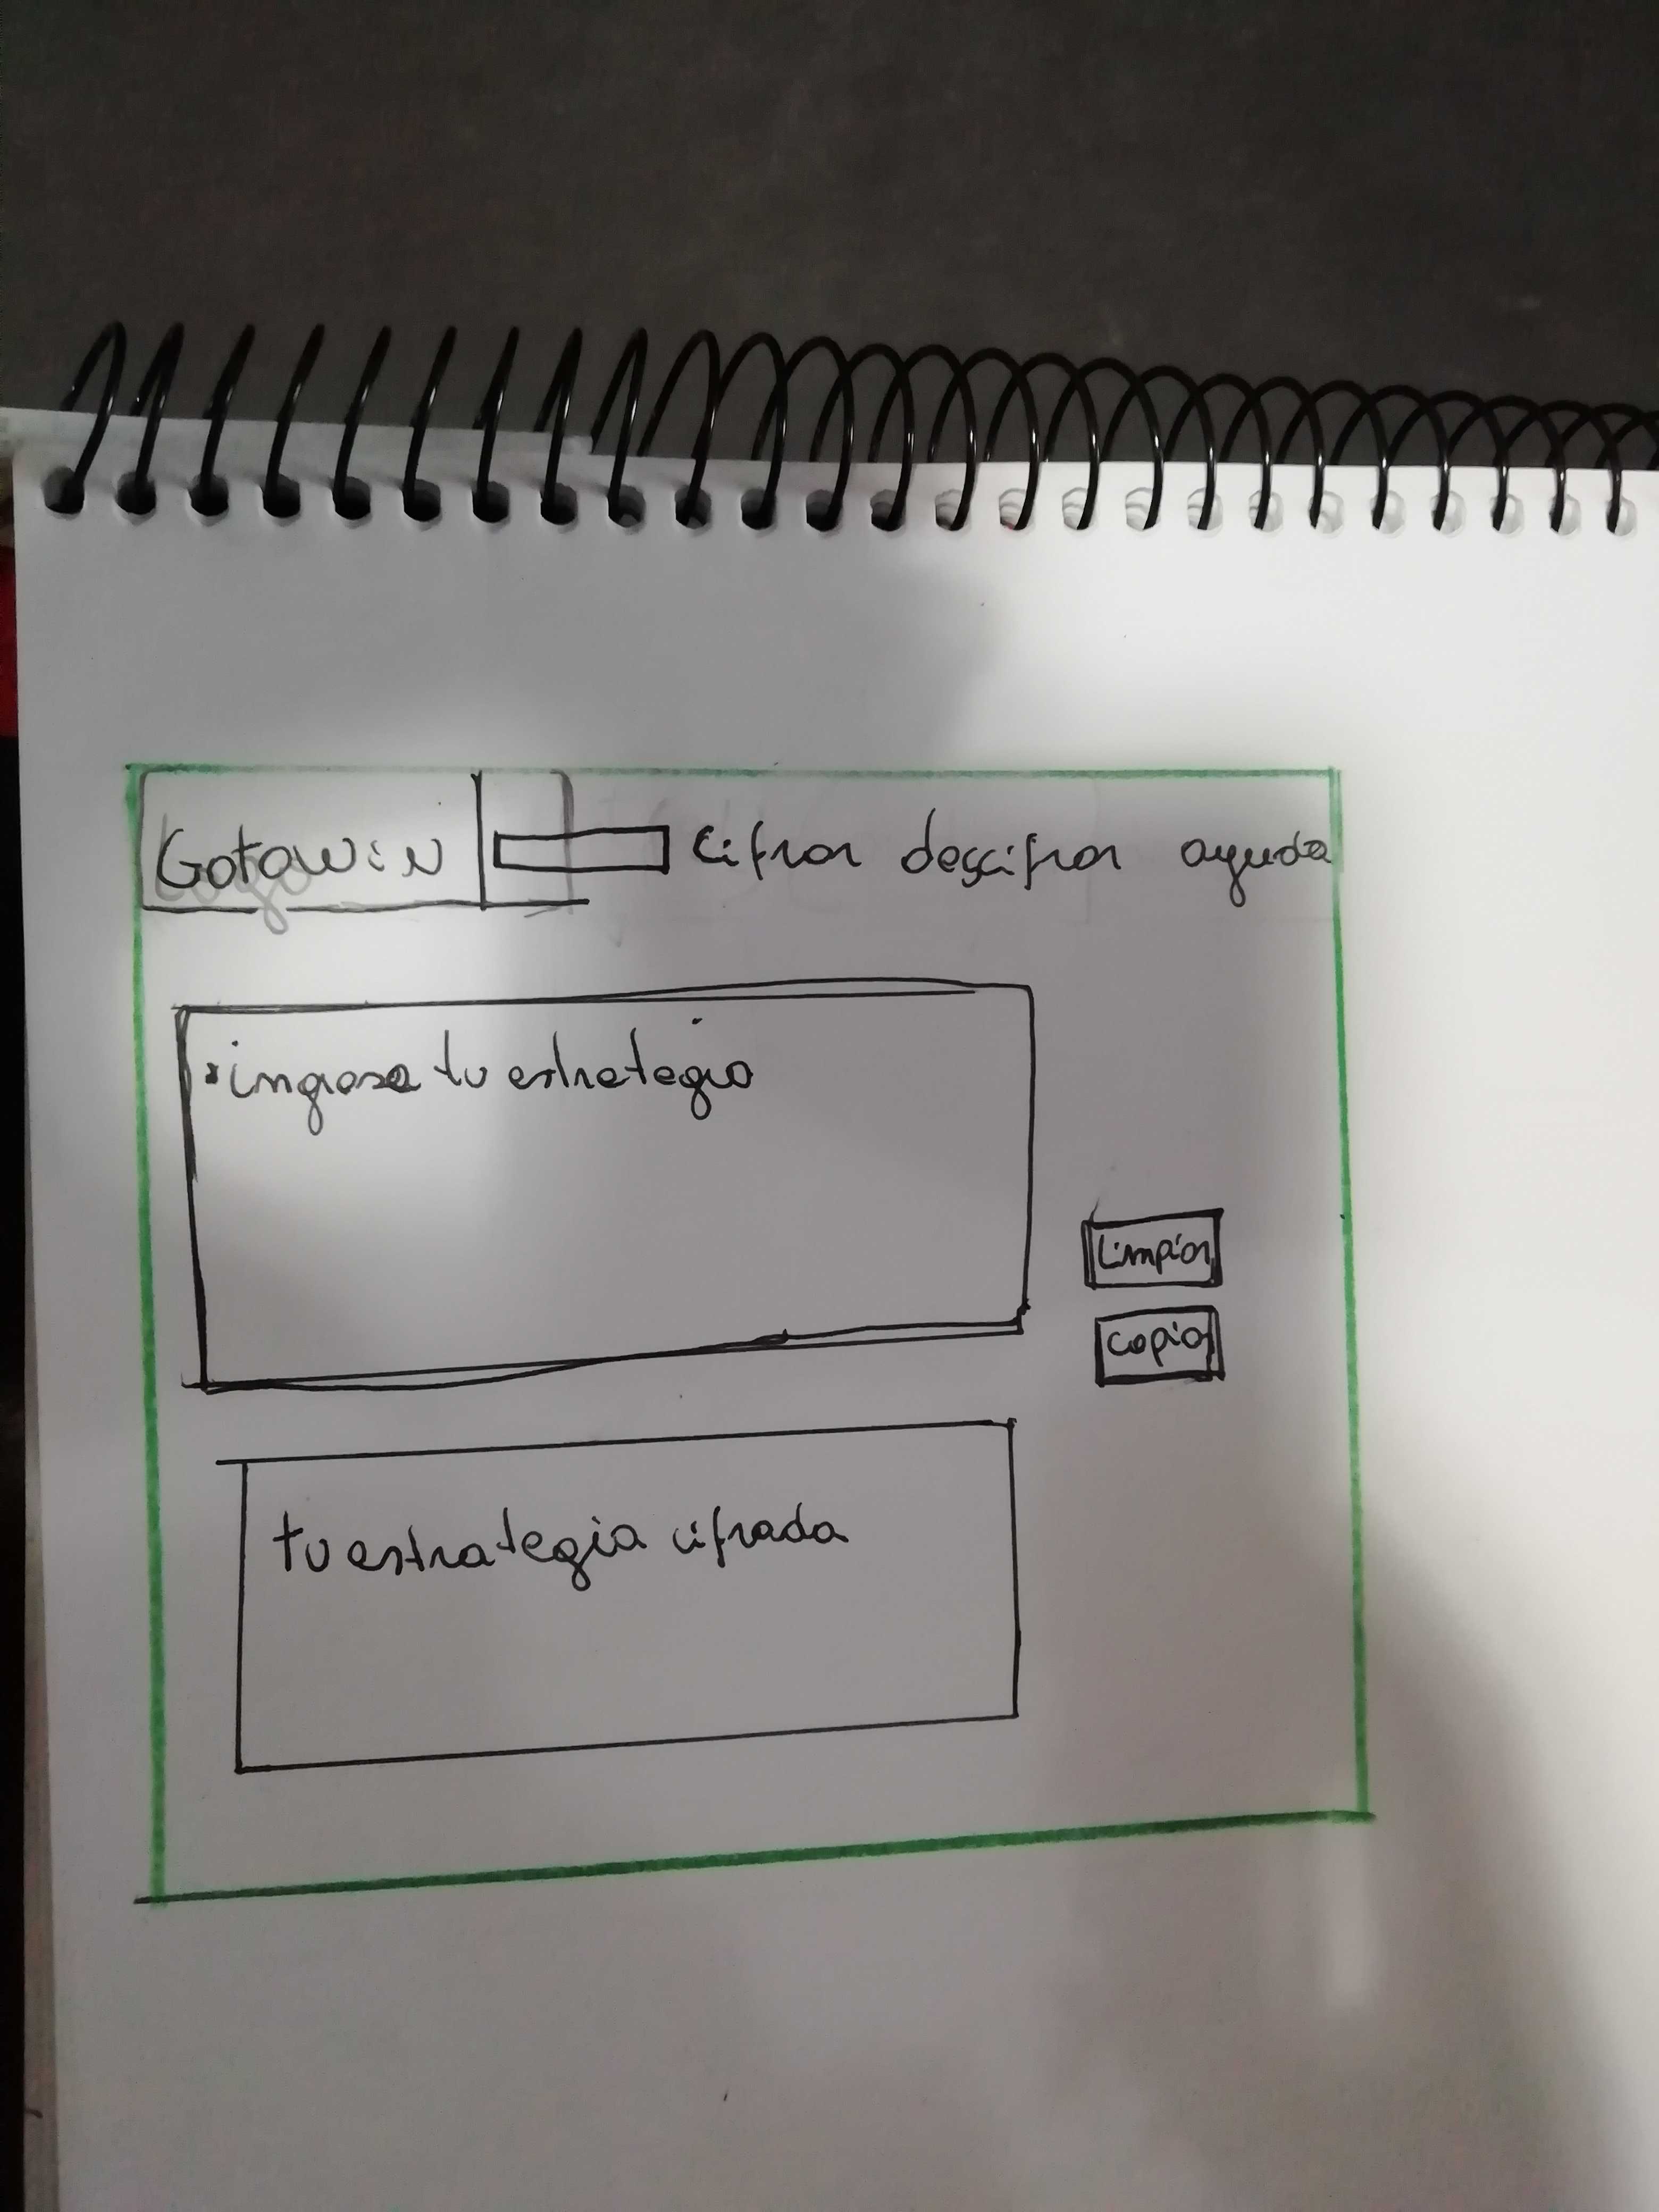 Gotawin cifrar descifrar ayuda
ingresa tu estrategia
Limpiar
copiar
tu estrategia cifrada